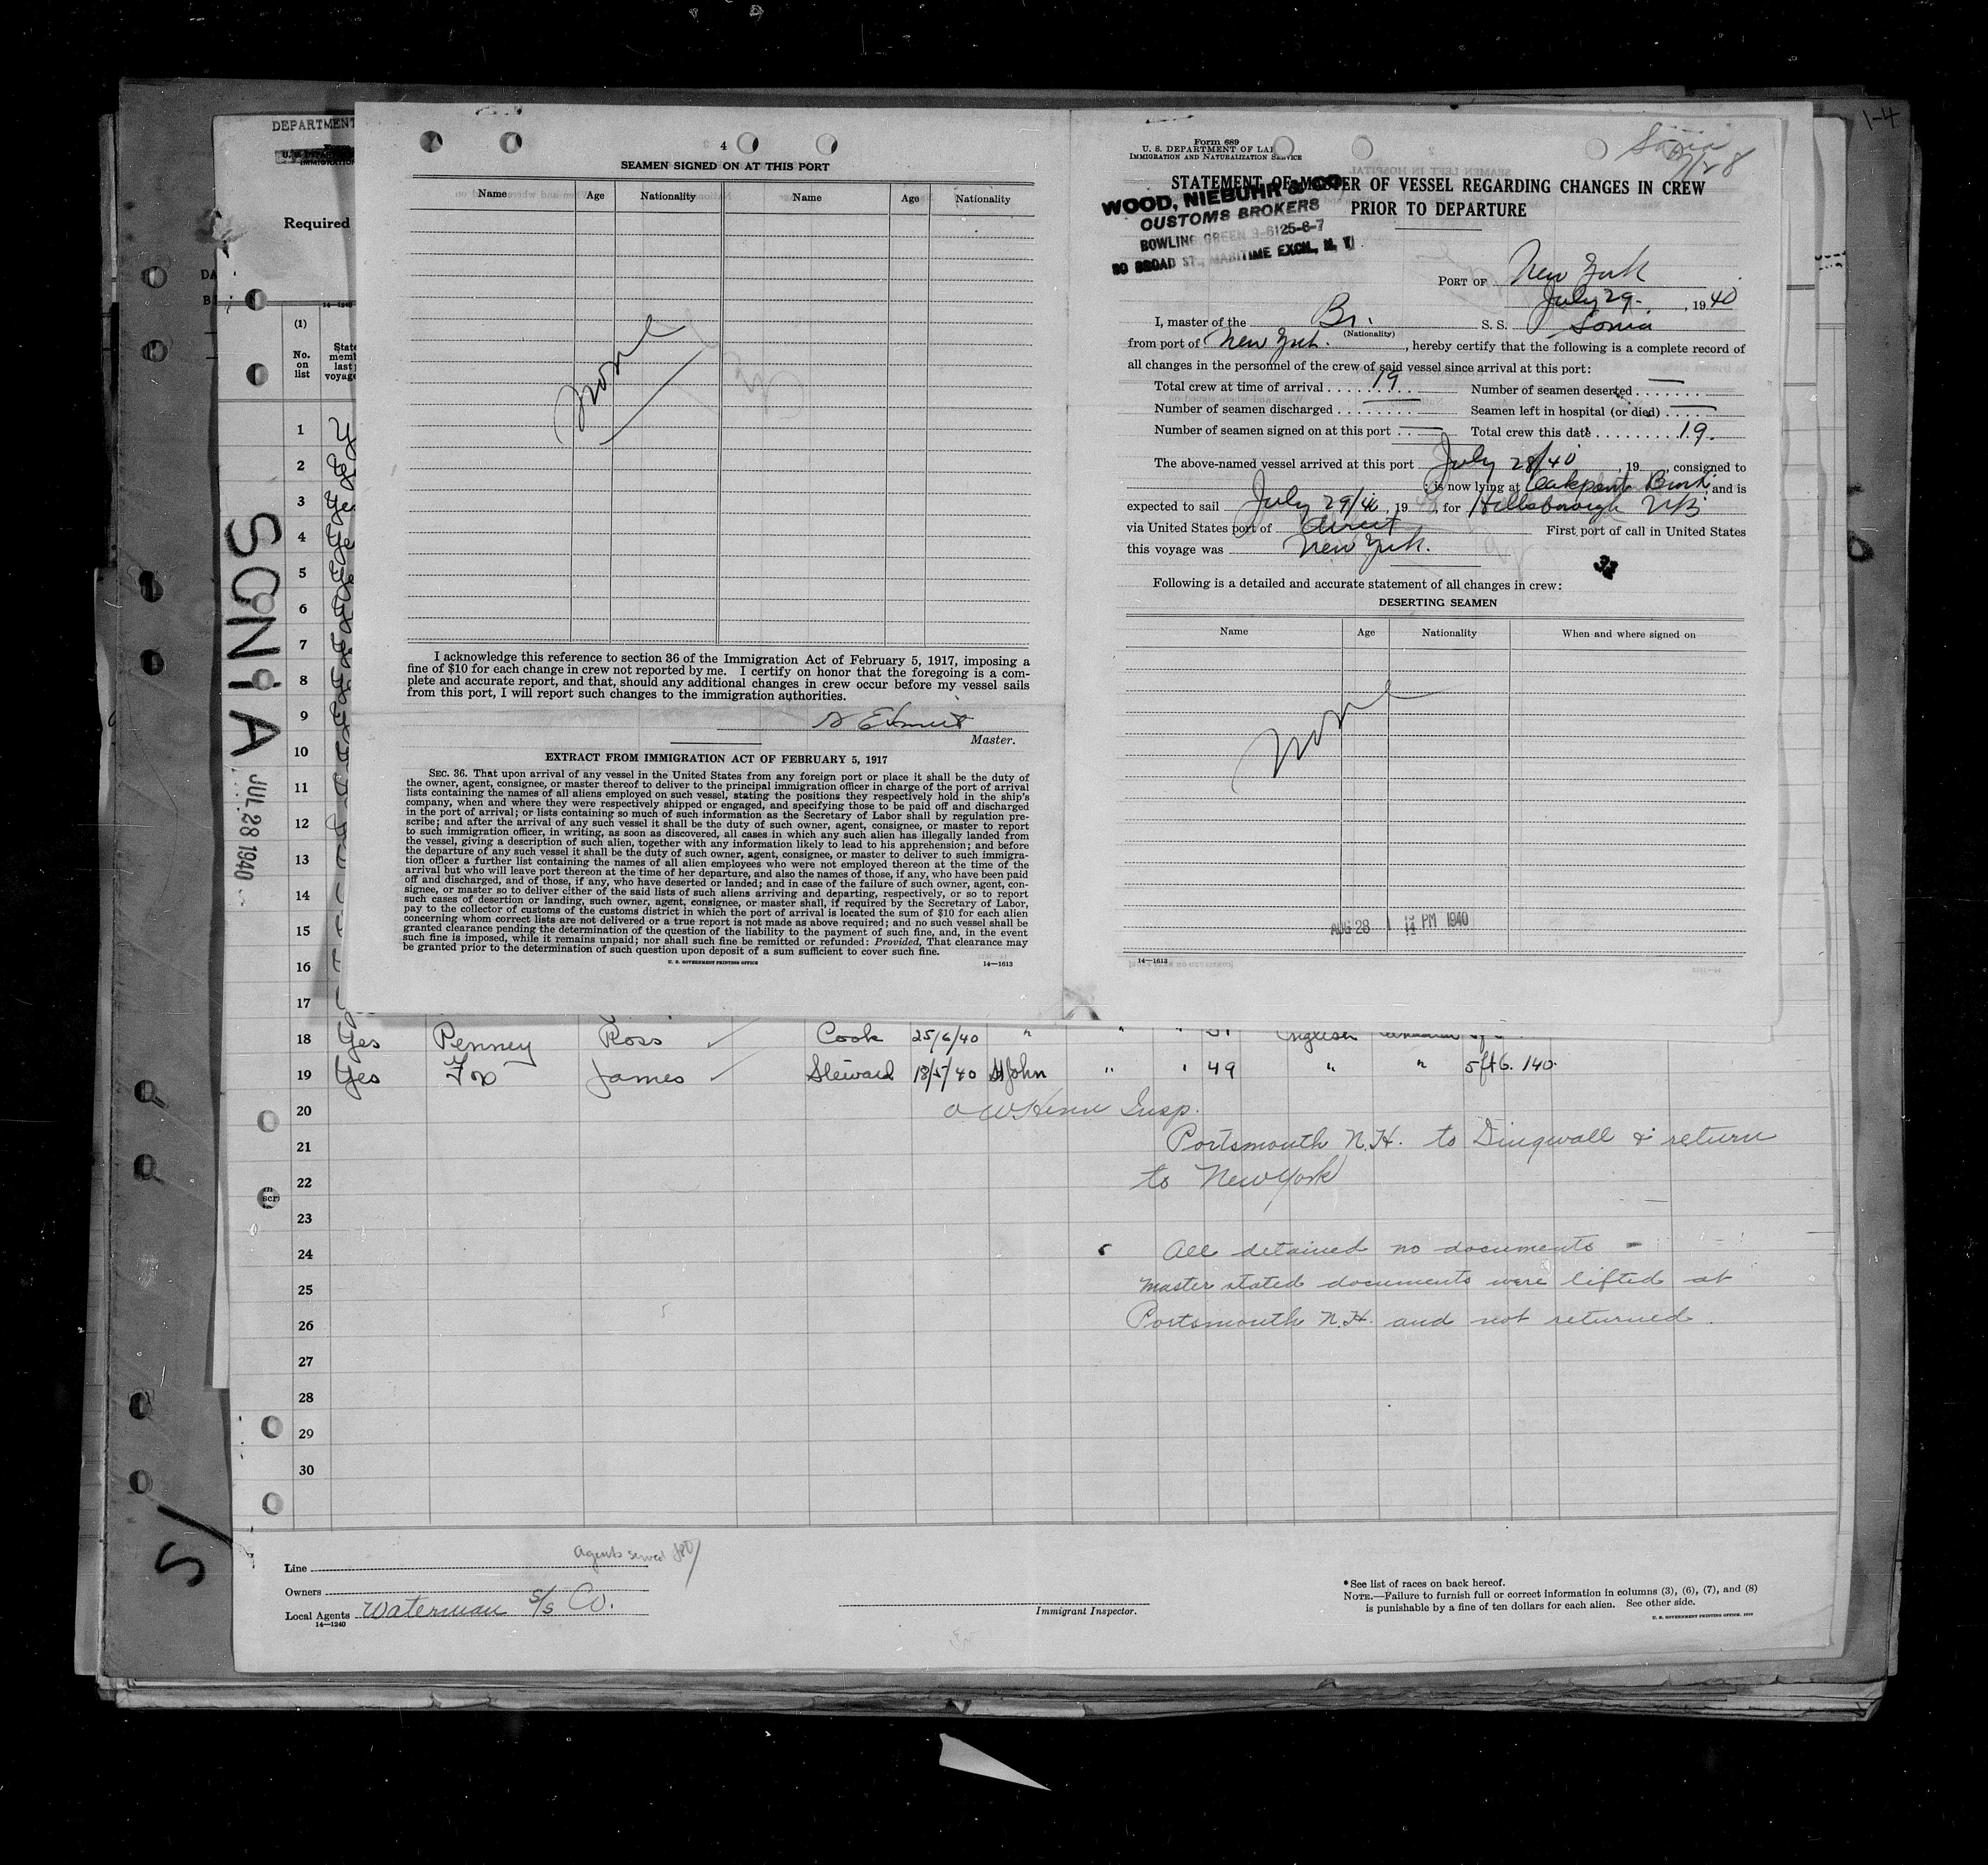 1-4
DEPARTMENT
Required
14-1240
(1)
No.
on
list
State
memb
last
voyage
SONIA
JUL 28 1940
4
SEAMEN SIGNED ON AT THIS PORT
Name Age Nationality Name Age Nationality
None
I acknowledge this reference to section 36 of the Immigration Act of February 5, 1917, imposing a
fine of $10 for each change in crew not reported by me. I certify on honor that the foregoing is a com-
plete and accurate report, and that, should any additional changes in crew occur before my vessel sails
from this port, I will report such changes to the immigration authorities.
Master.
EXTRACT FROM IMMIGRATION ACT OF FEBRUARY 5, 1917
SEC. 36. That upon arrival of any vessel in the United States from any foreign port or place it shall be the duty of
the owner, agent, consignee, or master thereof to deliver to the principal immigration officer in charge of the port of arrival
lists containing the names of all aliens employed on such vessel, stating the positions they respectively hold in the ship's
company, when and where they were respectively shipped or engaged, and specifying those to be paid off and discharged
in the port of arrival; or lists containing so much of such information as the Secretary of Labor shall by regulation pre-
scribe; and after the arrival of any such vessel it shall be the duty of such owner, agent, consignee, or master to report
to such immigration officer, in writing, as soon as discovered, all cases in which any such alien has illegally landed from
the vessel, giving a description of such alien, together with any information likely to lead to his apprehension; and before
the departure of any such vessel it shall be the duty of such owner, agent, consignee, or master to deliver to such immigra-
tion officer a further list containing the names of all alien employees who were not employed thereon at the time of the
arrival but who will leave port thereon at the time of her departure, and also the names of those, if any, who have been paid
off and discharged, and of those, if any, who have deserted or landed; and in case of the failure of such owner, agent, con-
signee, or master so to deliver either of the said lists of such aliens arriving and departing, respectively, or so to report
such cases of desertion or landing, such owner, agent, consignee, or master shall, if required by the Secretary of Labor,
pay to the collector of customs of the customs district in which the port of arrival is located the sum of $10 for each alien
concerning whom correct lists are not delivered or a true report is not made as above required; and no such vessel shall be
granted clearance pending the determination of the question of the liability to the payment of such fine, and, in the event
such fine is imposed, while it remains unpaid; nor shall such fine be remitted or refunded: Provided, That clearance may
be granted prior to the determination of such question upon deposit of a sum sufficient to cover such fine.
U. S. GOVERNMENT PRINTING OFFICE 14—1613
Form 689
U. S. DEPARTMENT OF LA
IMMIGRATION AND NATURALIZATION SERVICE
Sonia
7/28
STATEMENT OF MASTER OF VESSEL REGARDING CHANGES IN CREW
PRIOR TO DEPARTURE
WOOD, NIEBUHR & CO
CUSTOMS BROKERS
BOWLING GREEN 9-6125-6-7
80 BROAD ST., MARITIME EXCH., N. Y.
PORT OF New York
July 29, 1940
I, master of the Br. S. S. Sonia
(Nationality)
from port of New York, hereby certify that the following is a complete record of
all changes in the personnel of the crew of said vessel since arrival at this port:
Total crew at time of arrival 19 Number of seamen deserted —
Number of seamen discharged — Seamen left in hospital (or died) —
Number of seamen signed on at this port — Total crew this date 19.
The above-named vessel arrived at this port July 28/40, 19 , consigned to
; is now lying at Oakpoint, and is
expected to sail July 29/40, 19 , for Hillsborough NB
via United States port of direct First port of call in United States
this voyage was New York.
Following is a detailed and accurate statement of all changes in crew:
DESERTING SEAMEN
Name Age Nationality When and where signed on
None
AUG 28 PM 1940
14—1613
1
2
3
4
5
6
7
8
9
10
11
12
13
14
15
16
17
18 Yes Penney Ross Cook 25/6/40 " " " English
19 Yes Fox James Steward 18/5/40 St John " " 49 " " 5ft6. 140.
20 Insp.
21 Portsmouth N.H. to Dingwall & return
22 to New York
23
24 All detained no documents -
25 Master stated documents were lifted at
26 Portsmouth N.H. and not returned.
27
28
29
30
Agents served
Line
Owners
Local Agents Waterman S/S Co.
14—1240
Immigrant Inspector.
* See list of races on back hereof.
NOTE.—Failure to furnish full or correct information in columns (3), (6), (7), and (8)
is punishable by a fine of ten dollars for each alien. See other side.
U. S. GOVERNMENT PRINTING OFFICE